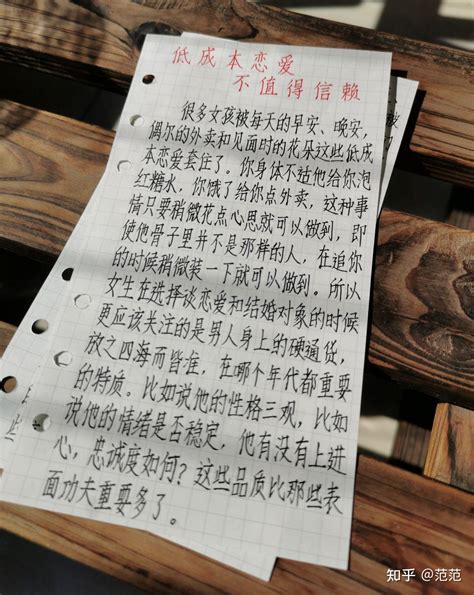 低成本恋爱
不值得信赖
很多女孩被每天的早安、晚安，
偶尔的外卖和见面时的花朵这些低成
本恋爱套住了。你身体不适他给你泡
红糖水，你饿了给你点外卖，这种事
情只要稍微花点心思就可以做到，即
使他骨子里并不是那样的人，在追你
的时候稍微装一下就可以做到。所以
女生在选择谈恋爱和结婚对象的时候
更应该关注的是男人身上的硬通货，
放之四海而皆准，在哪个年代都重要
的特质。比如说他的性格三观，比如
说他的情绪是否稳定，他有没有上进
心，忠诚度如何？这些品质比那些表
面功夫重要多了。
知乎 @范范